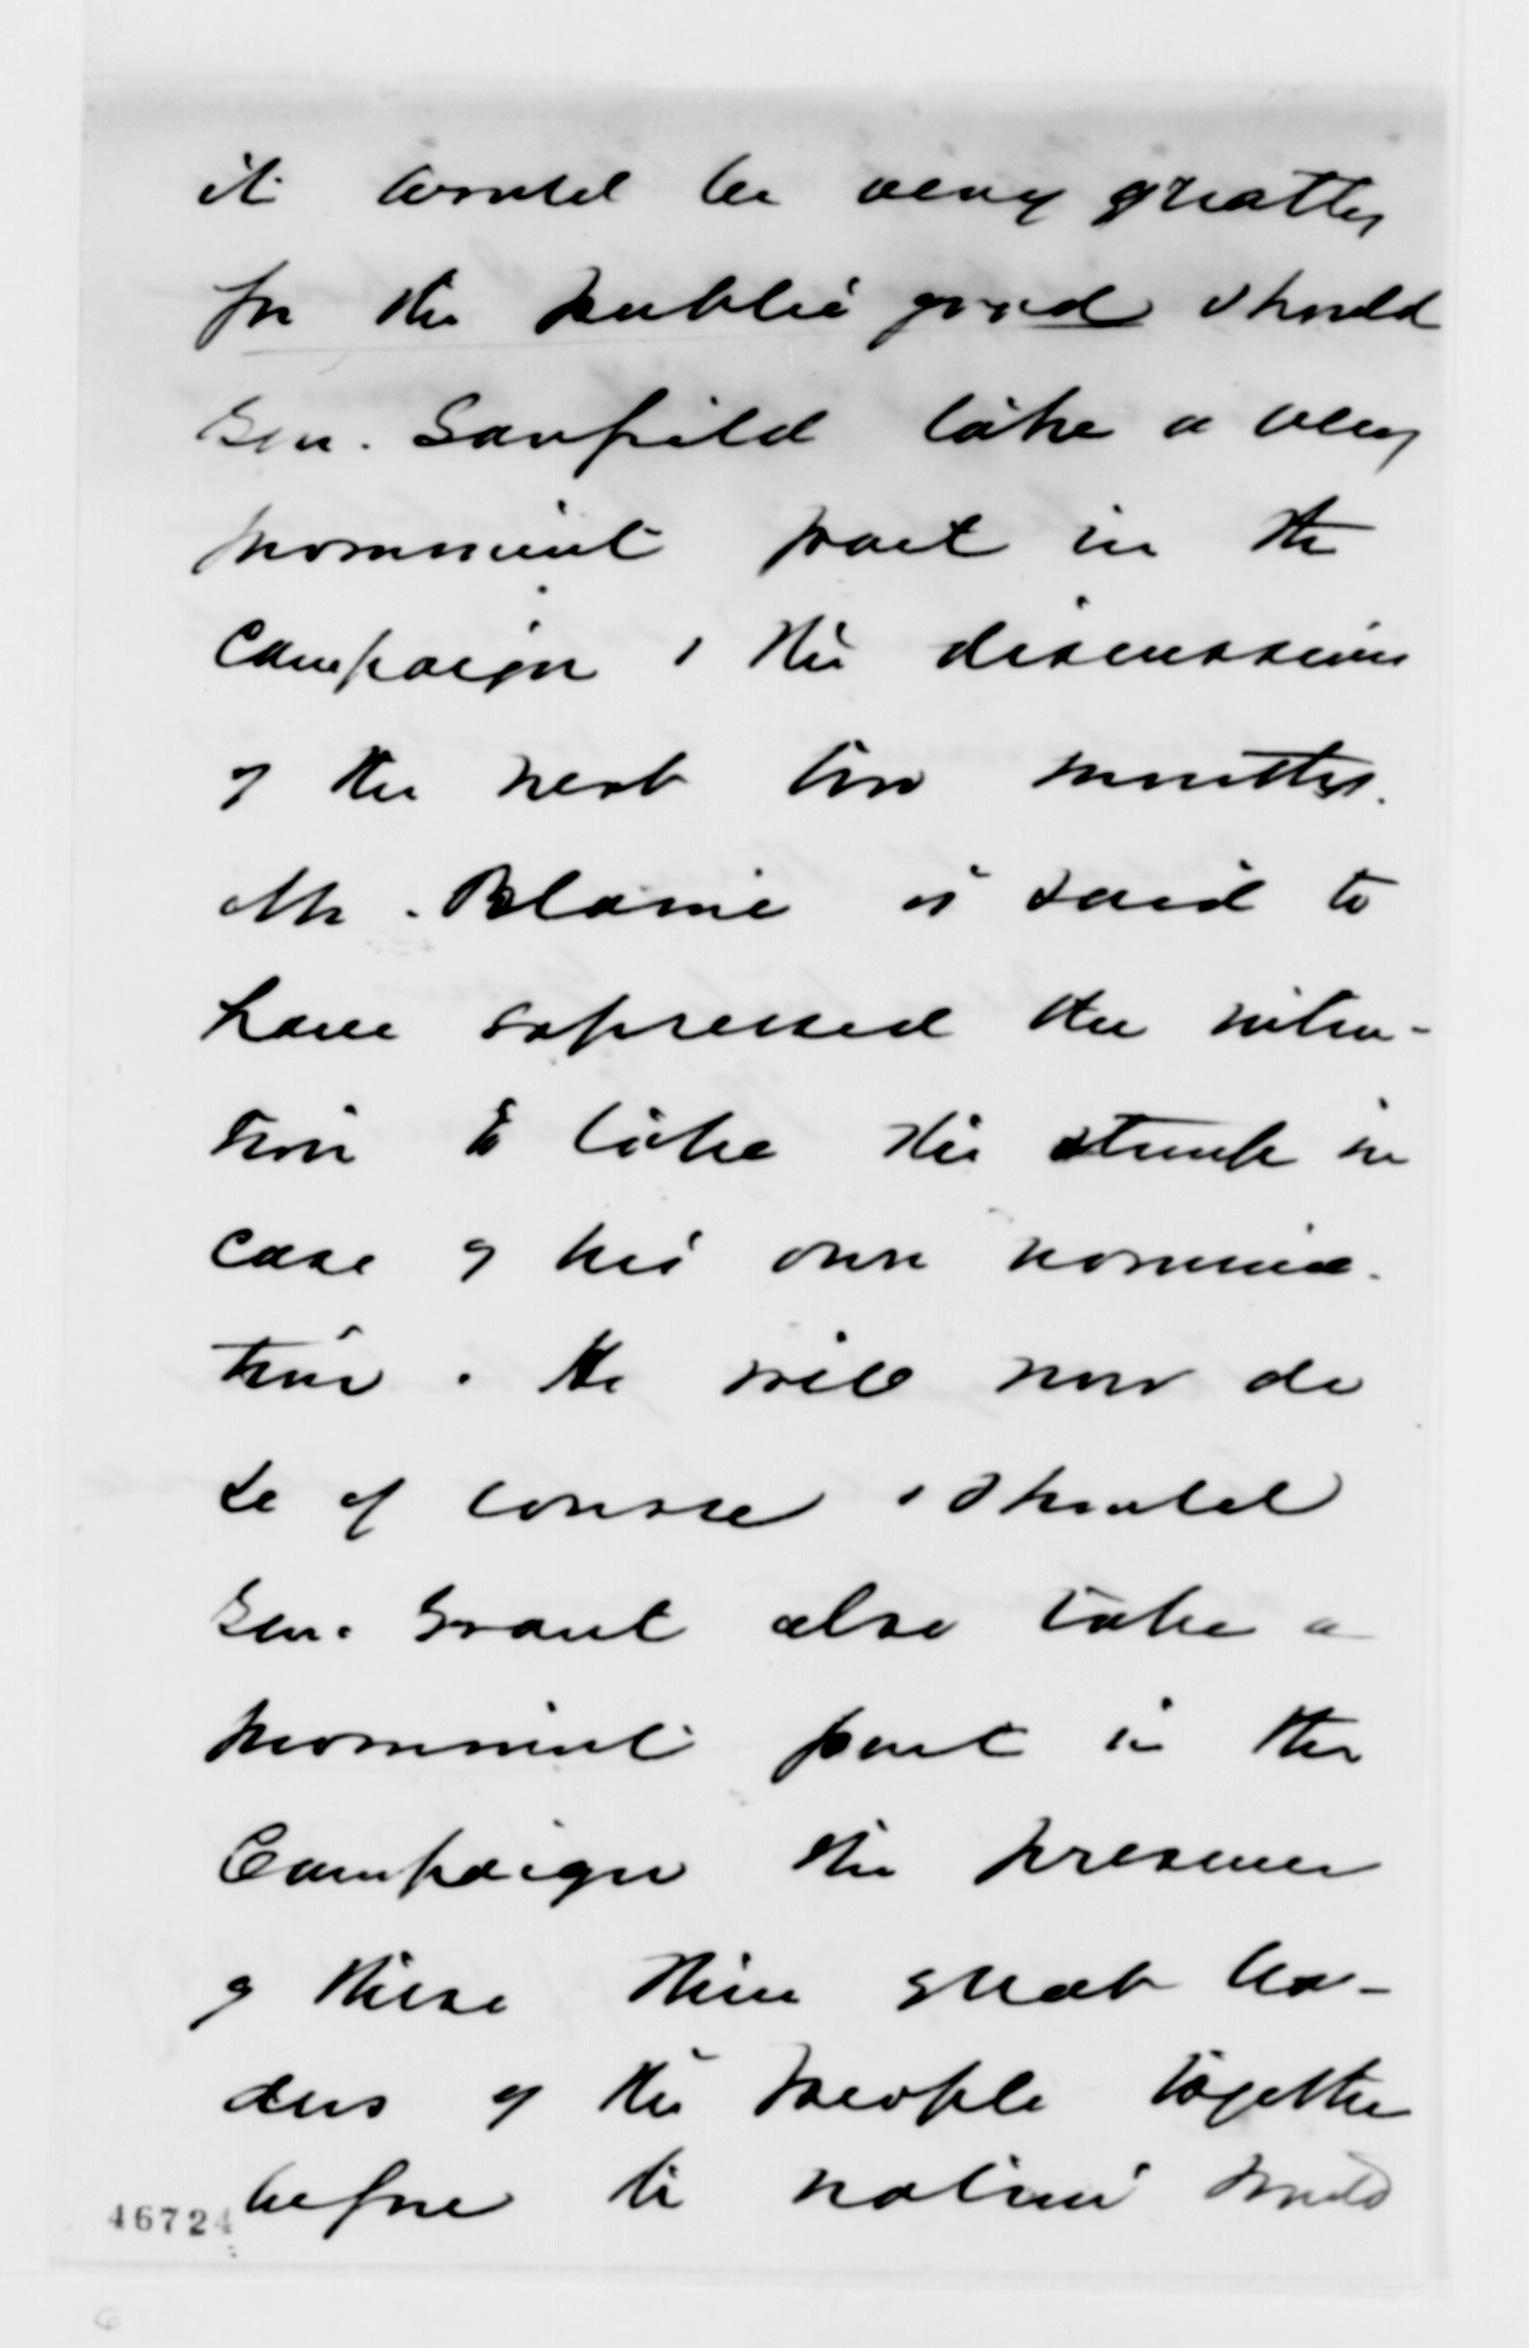 it would be very greatly
for the public good should
Gen. Garfield take a very
prominent part in the
Campaign & the discussions
of the next two months.
Mr. Blaine is said to
have expressed the inten-
tion to take the stump in
case of his own nomina-
tion. He will now do
so of course & should
Gen. Grant also take a
prominent part in the
Campaign the presence
of these three great lea-
ders of the people together
before the nation would
46724